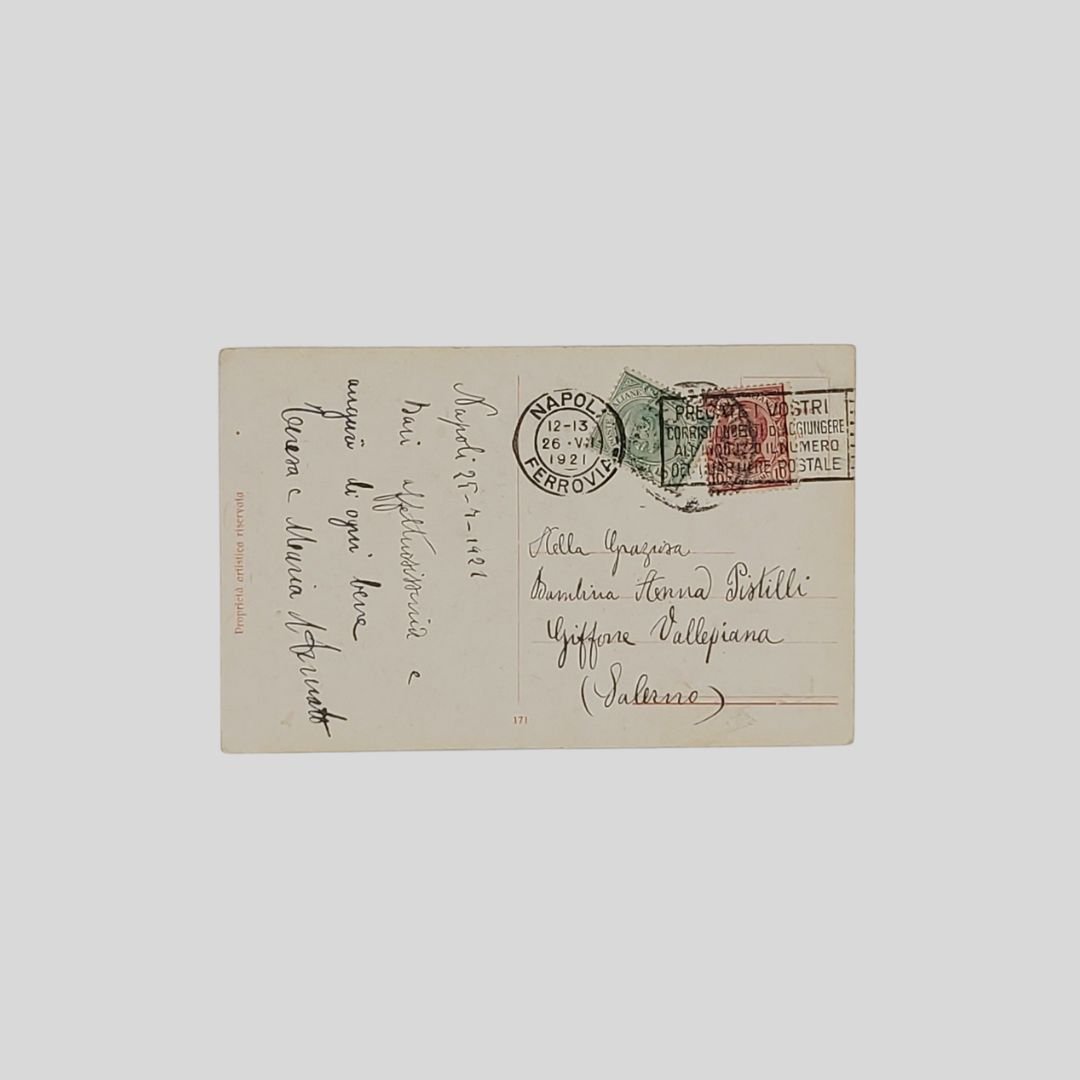 Napoli 25-7-1921
Baci affettuosissimi e
auguri di ogni bene
Teresa e Maria
Proprietà artistica riservata
NAPOLI
12-13
26 · VII
1921
FERROVIA
PREGATE I VOSTRI
CORRISPONDENTI D'AGGIUNGERE
ALL'INDIRIZZO IL NUMERO
DEL QUARTIERE POSTALE
10 10
Alla Graziosa
Bambina Anna Pistilli
Giffone Vallepiana
(Salerno)
171